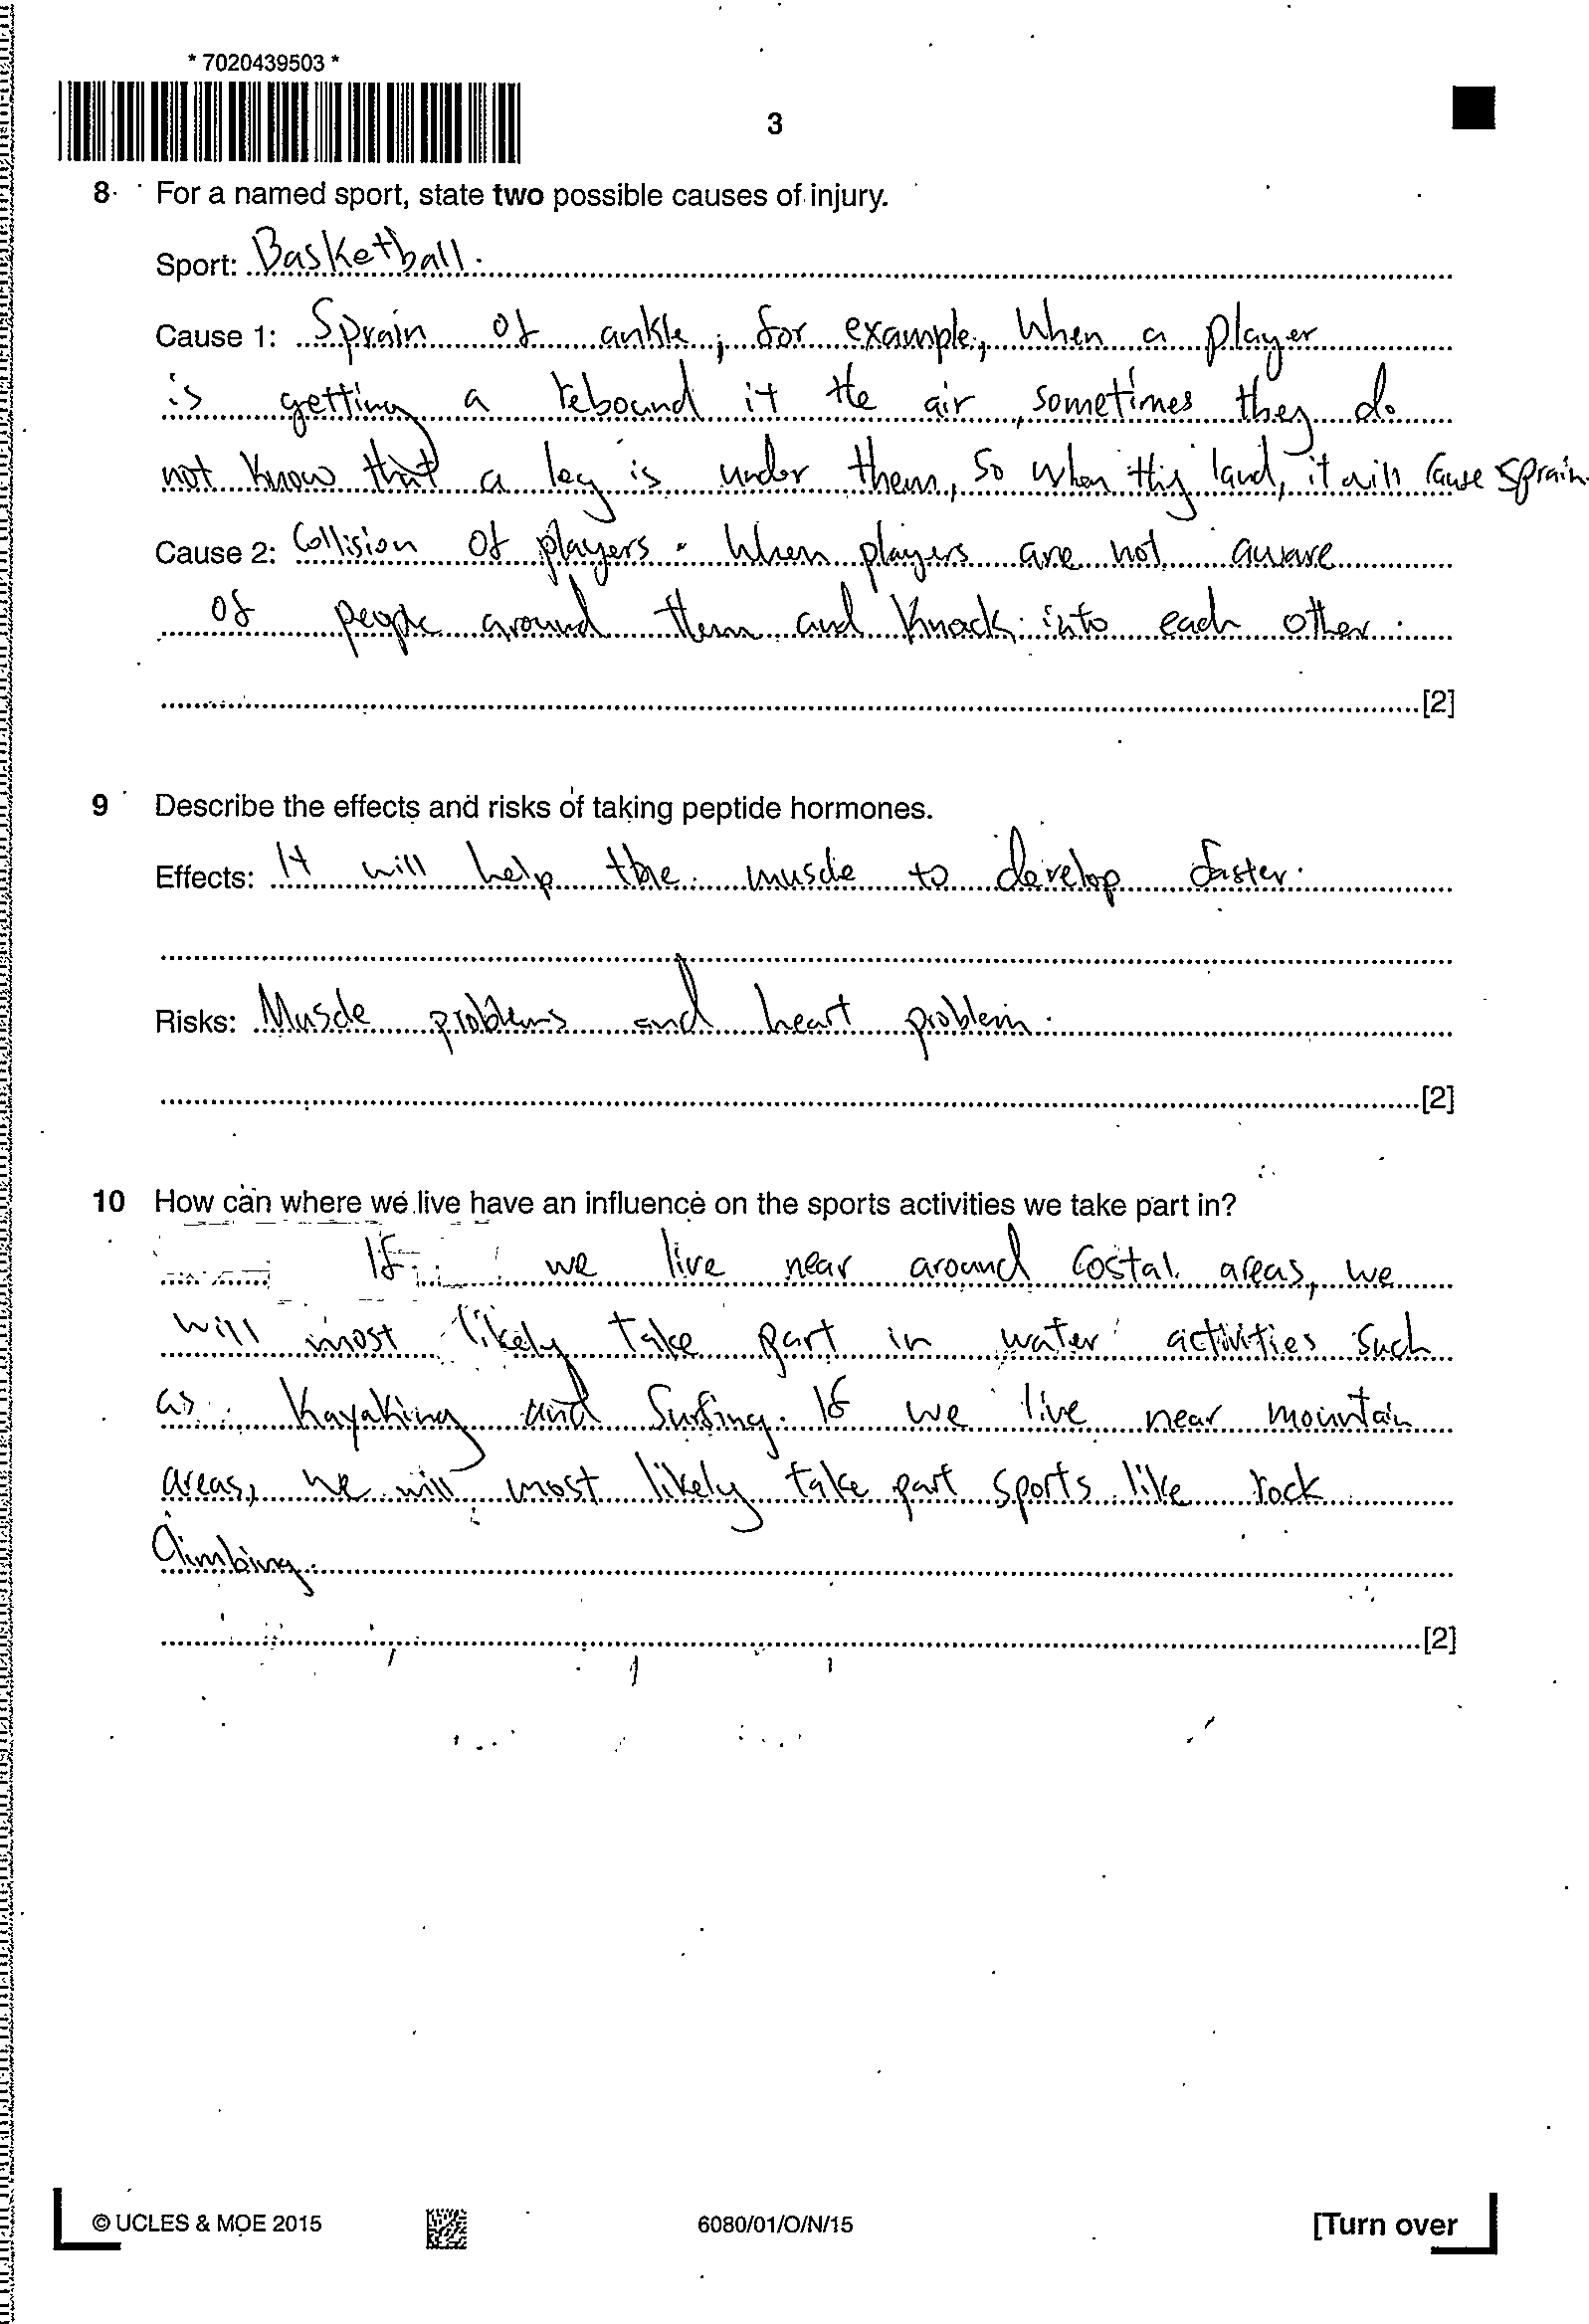 * 7020439503 *
3
8 For a named sport, state two possible causes of injury.
Sport: Basketball.
Cause 1: Sprain of ankle, for example, when a player
is getting a rebound it the air, sometimes they do
not know that a leg is under them, so when they land, it will cause sprain.
Cause 2: Collision of players. When players are not aware
of people around them and knock into each other.
[2]
9 Describe the effects and risks of taking peptide hormones.
Effects: It will help the muscle to develop faster.
Risks: Muscle problems and heart problem.
[2]
10 How can where we live have an influence on the sports activities we take part in?
If we live near around costal areas, we
will most likely take part in water activities such
as kayaking and surfing. If we live near mountain
areas, we will most likely take part sports like rock
climbing.
[2]
© UCLES & MOE 2015
6080/01/O/N/15
[Turn over